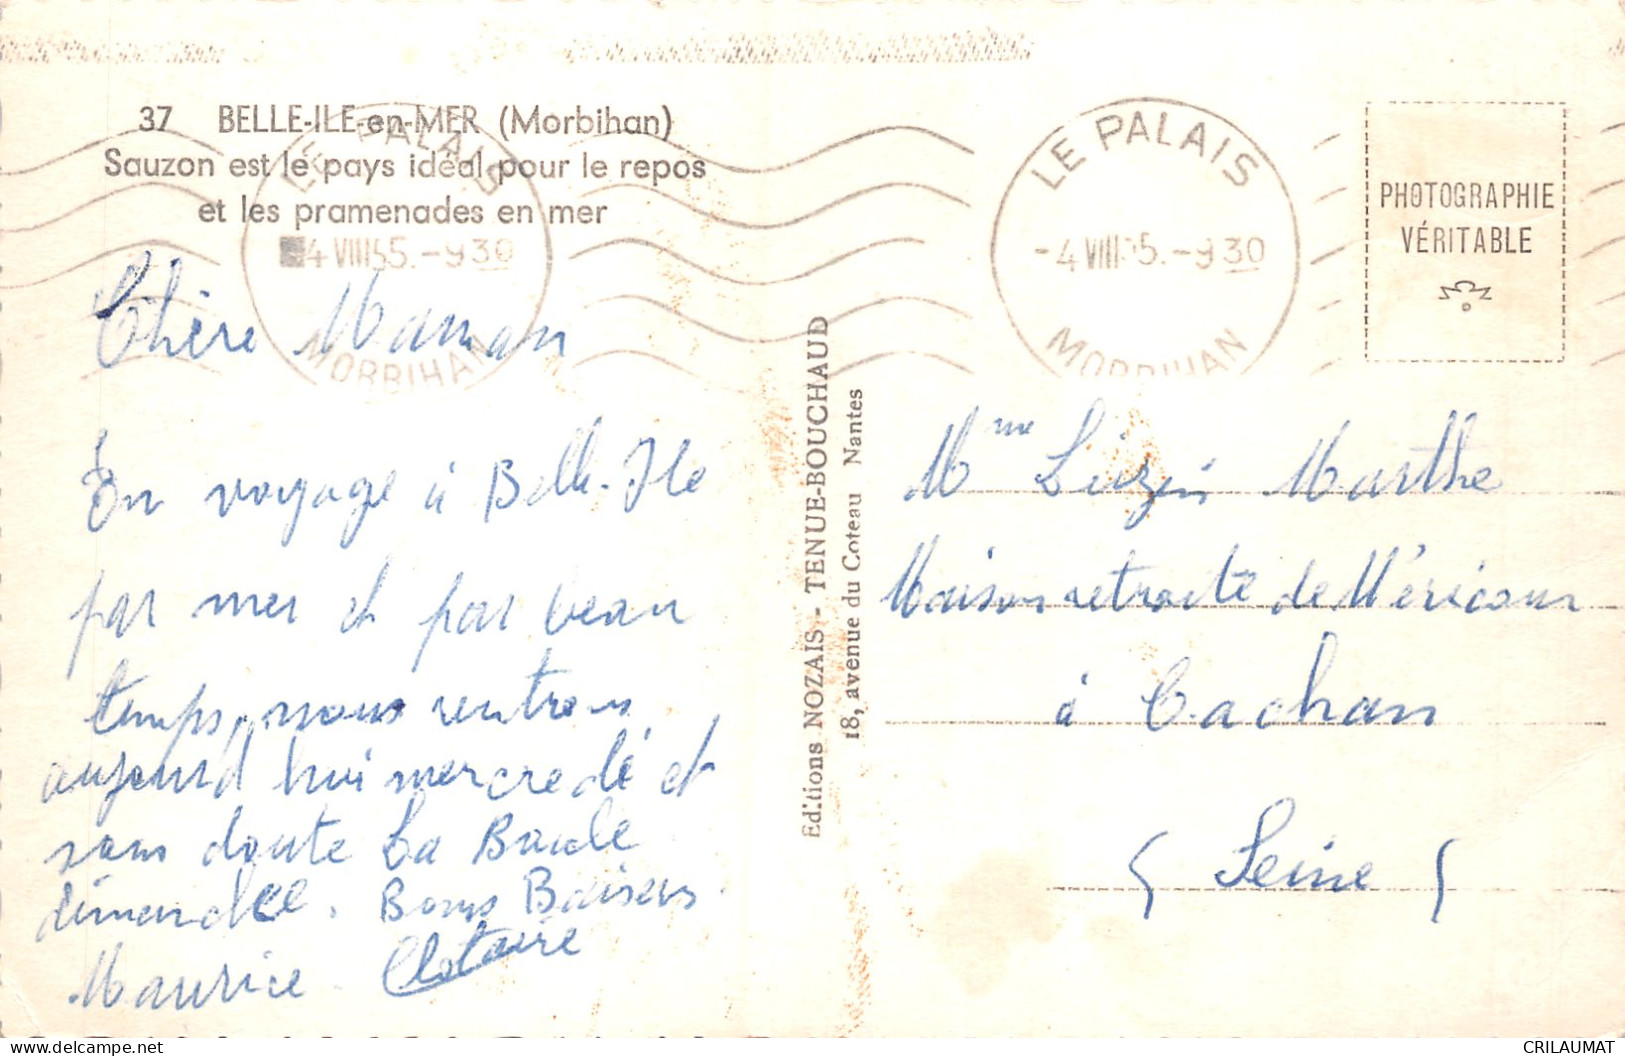 37 BELLE-ILE-en-MER (Morbihan)
Sauzon est le pays idéal pour le repos
et les pramenades en mer
LE PALAIS
4 VIII 55.-9 30
MORBIHAN
Chère Maman
En voyage à Belle-Ile
par mer et par beau
temps, nous rentrons
aujourd hui mercredi et
sans doute La Baule
dimanche. Bons Baisers.
Maurice Clotaire
Editions NOZAIS - TENUE-BOUCHAUD
18, avenue du Coteau Nantes
LE PALAIS
-4 VIII 5.-9 30
MORBIHAN
PHOTOGRAPHIE
VÉRITABLE
Mme Marthe
Maison retraite de
à Cachan
(Seine)
CRILAUMAT